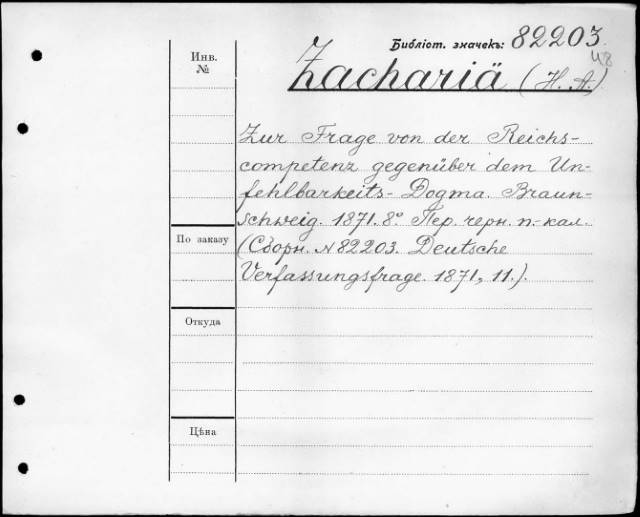 Библіот. значекъ: 82203
48
Инв.
№
Zachariä (H. A.)
Zur Frage von der Reichs-
competenz gegenüber dem Un-
fehlbarkeits-Dogma. Braun-
schweig. 1871. 8º. Пер. черн. п-кал.
(Сборн. №82203. Deutsche
Verfassungsfrage. 1871, 11.).
По заказу
Откуда
Цѣна